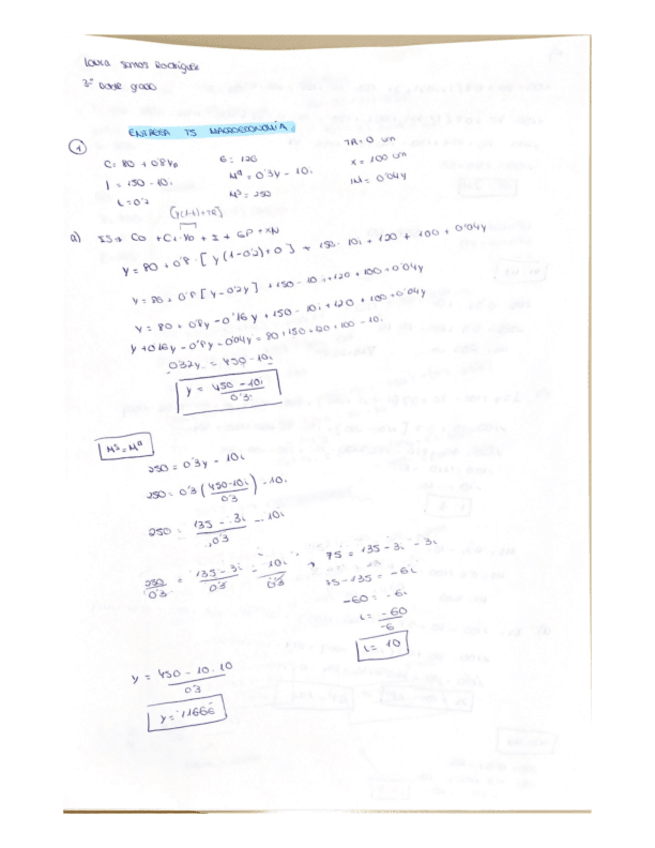 Laura Ramos Rodríguez
2º Doble grado
ENTREGA T5 MACROECONOMÍA
①
C = 80 + 0'8Yd G = 120 TR = 0 um
I = 150 - 10i Mᵈ = 0'3y - 10i X = 100 um
t = 0'2 Mˢ = 250 IM = 0'04y
[Y(1-t)+TR]
a) IS → Co + C1·Yd + I + GP + XN
y = 80 + 0'8 · [y(1-0'2)+0] + 150 - 10i + 120 + 100 + 0'04y
y = 80 + 0'8 [y - 0'2y] + 150 - 10i + 120 + 100 + 0'04y
y = 80 + 0'8y - 0'16y + 150 - 10i + 120 + 100 + 0'04y
y + 0'16y - 0'8y - 0'04y = 80 + 150 + 120 + 100 - 10i
0'32y = 450 - 10i
y = 450 - 10i / 0'3
Mˢ = Mᵈ
250 = 0'3y - 10i
250 = 0'3 (450-10i / 0'3) - 10i
250 = 135 - 3i / 0'3 - 10i
250 / 0'3 = 135 - 3i / 0'3 - 10i / 0'3 → 75 = 135 - 3i - 3i
75 - 135 = -6i
-60 = -6i
i = -60 / -6
i = 10
y = 450 - 10 · 10 / 0'3
y = 1166'6